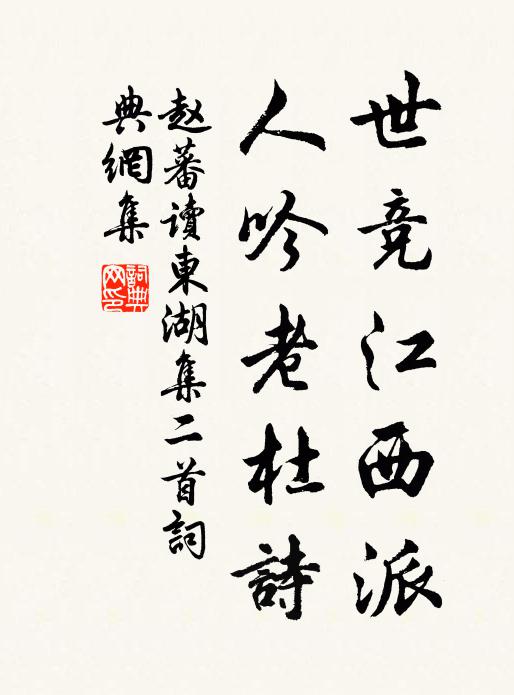 世竞江西派
人吟老杜詩
赵蕃讀東湖集二首詞
典網集
詞典
网印